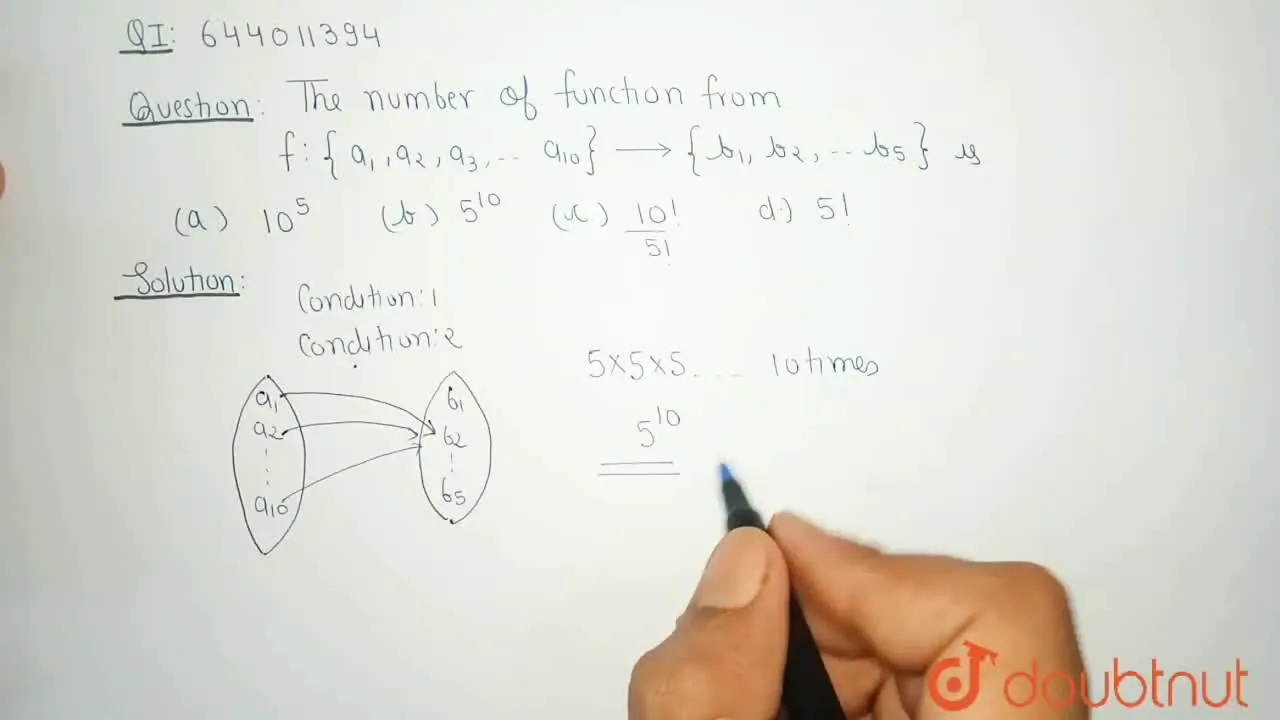 QI: 644011394
Question: The number of function from
f: { a1, a2, a3, ... a10} → { b1, b2, ... b5 } is
(a) 10^5 (b) 5^10 (c) 10!/5! d.) 5!
Solution:
Condition: 1
Condition: 2
5×5×5... ... 10 times
5^10
a1 b1
a2 b2
a10 b5
doubtnut